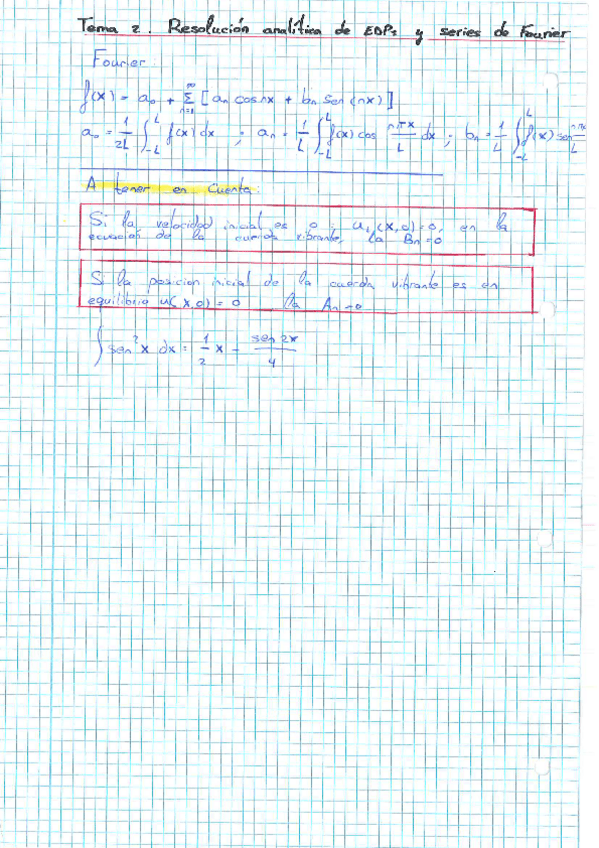 Tema 2. Resolución analítica de EDPs y series de Fourier
Fourier:
f(x) = a₀ + Σ_{n=1}^{∞} [an cos nx + bn sen (nx)]
a₀ = 1/2L ∫_{-L}^{L} f(x) dx ; an = 1/L ∫_{-L}^{L} f(x) cos nπx/L dx ; bn = 1/L ∫_{-L}^{L} f(x) sen nπx/L
A tener en cuenta:
Si la velocidad inicial es 0 : ut (x,0) = 0, en la
ecuación de la cuerda vibrante, la Bn = 0
Si la posicion inicial de la cuerda vibrante es en
equilibrio u(x,0) = 0 la An = 0
∫ sen²x dx = 1/2 x - sen 2x/4